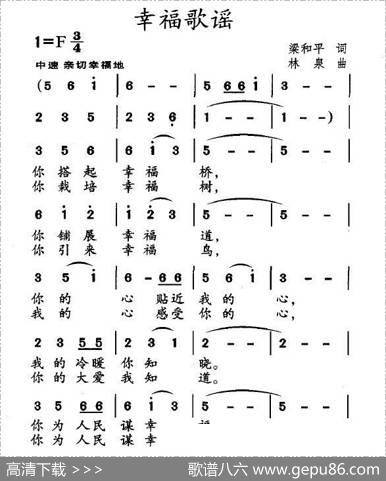 幸福歌谣
1=F 3/4
梁和平 词
中速 亲切幸福地
林泉 曲
(5 6 i | 6 - - | 5 66 i | 3 - - |
2 3 5 | 2 3 6 | 1 - - | 1 - -) |
3 5 6 | 6 i 3 | 5 - - | 5 - - |
你 搭 起 幸 福 桥,
你 栽 培 幸 福 树,
6 i 2 | i 2 3 | 5 - - | 5 - - |
你 铺 展 幸 福 道,
你 引 来 幸 福 鸟,
3 5 i | 6 - 66 | 5 6 i | 3 - - |
你 的 心 贴近 我 的 心,
我 的 心 感受 你 的 心,
2 3 55 | 2 3 1 | 2 - - | 2 - - |
我 的 冷暖 你 知 晓。
你 的 大爱 我 知 道。
3 5 66 | 6 i 3 | 5 - - | 5 - - |
你 为 人民 谋 幸
你 为 人民 谋 幸
高清下载 >>>
歌谱八六 www.gepu86.com